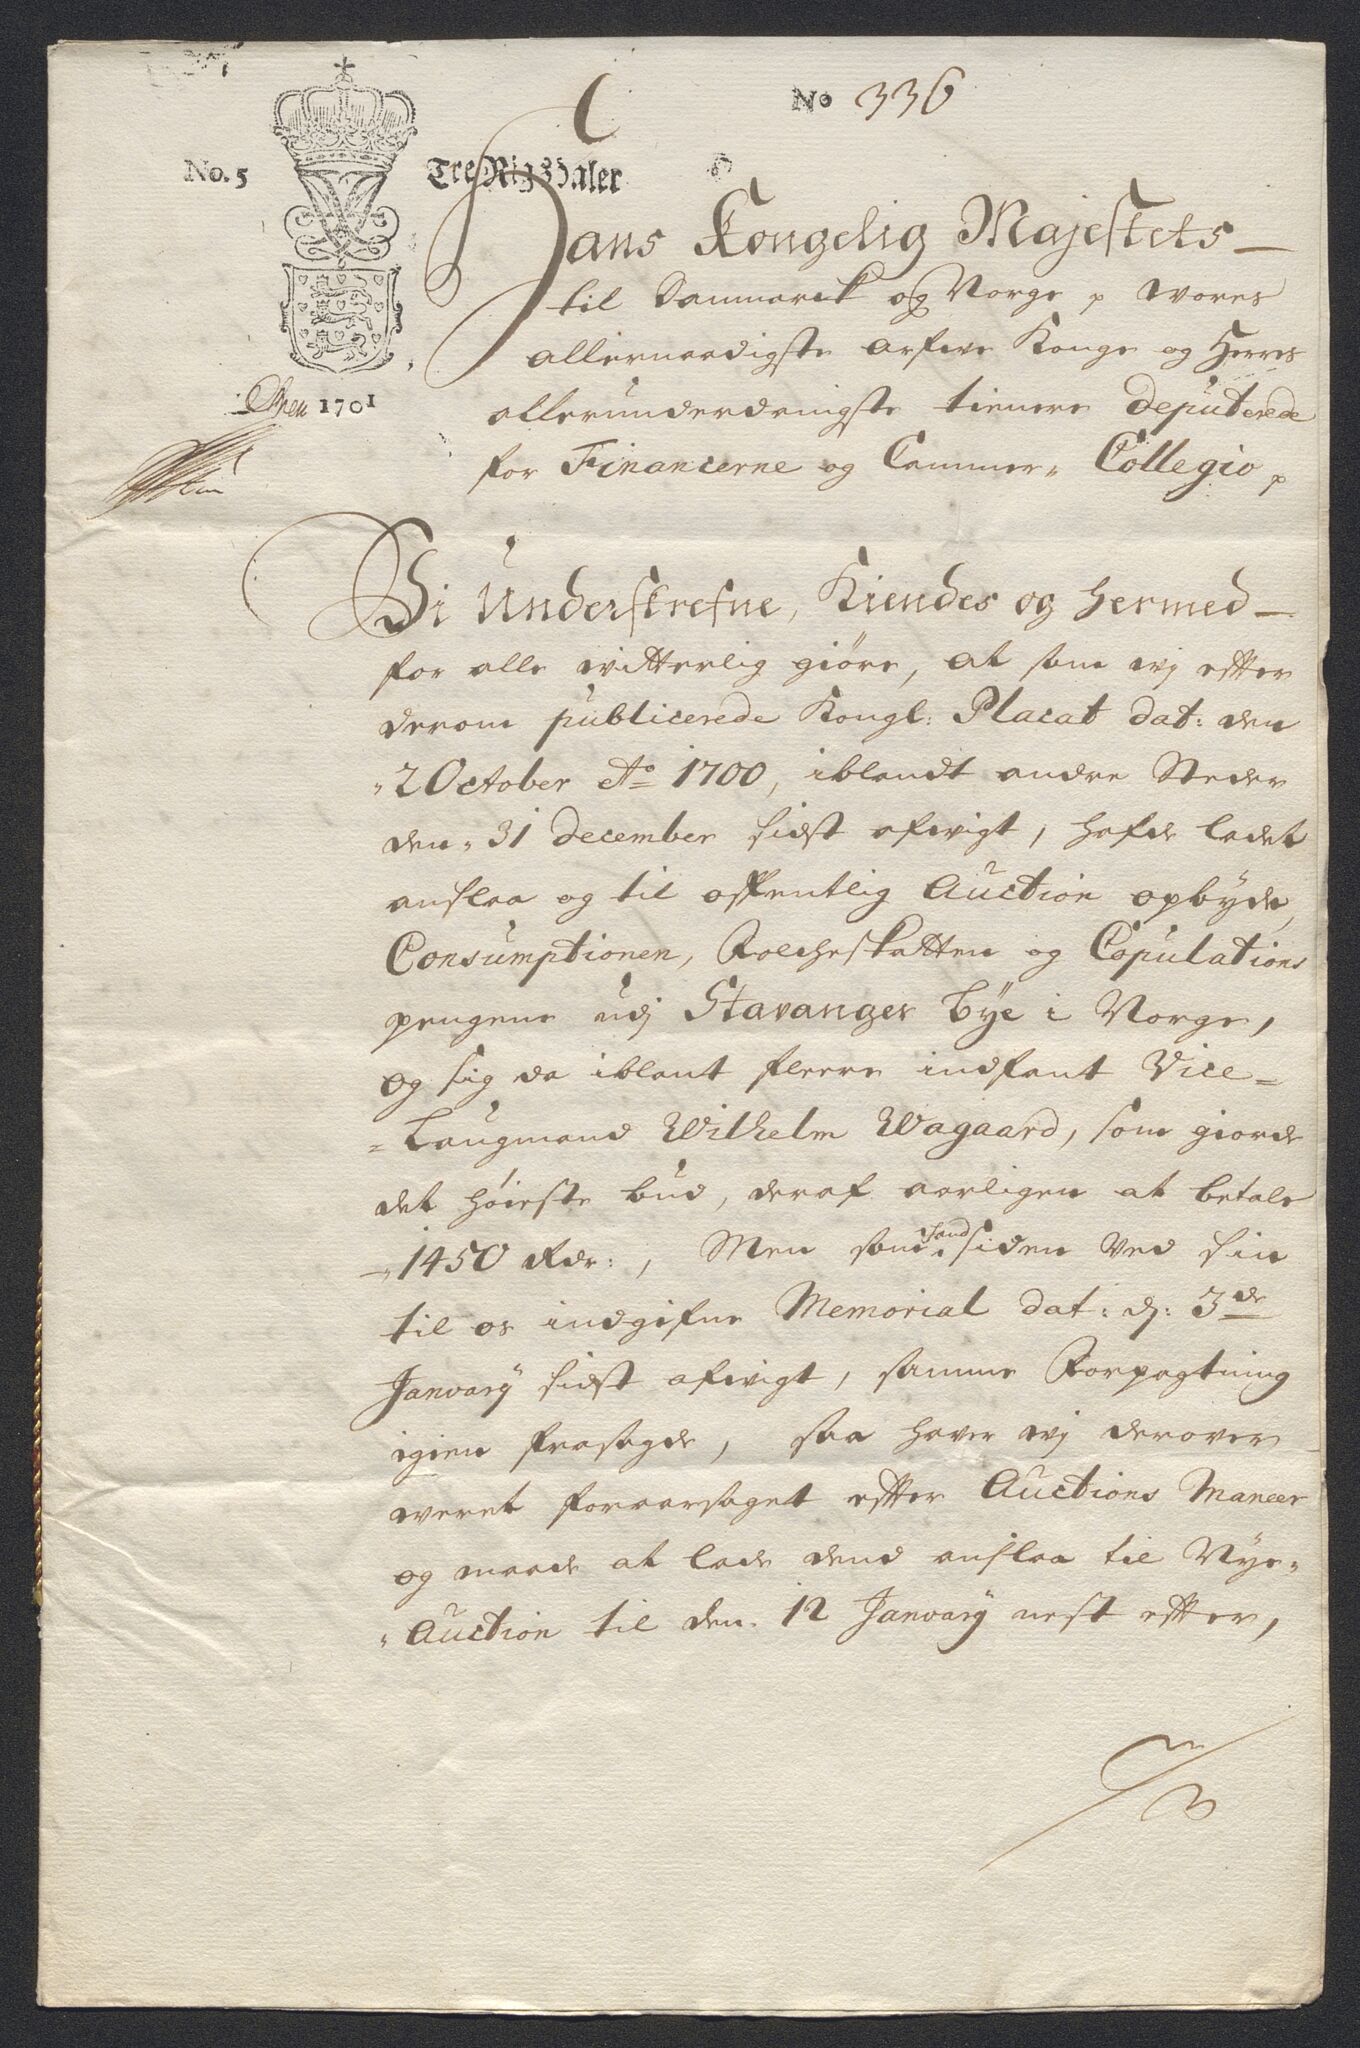 No 336
No. 5
Tre Rigsdaler
1701
Hans Kongelig Majestets
til Danmarck og Norge p wores
allernaadigste arfwe Konge og Herres
allerunderdanigste tienere deputerede
for Financerne og Cammer„ Collegio p
Vi Underskrefne, Kiendes og hermed
for alle witterlig giöre, at som wj efter
derom publicerede Kongl: Placat dat: den
„2 October Ao 1700, iblandt andre Steder
den„ 31 december sidst afwigt, hafde ladet
anslaa og til offentlig Auction opbyde,
Consumptionen, Folcheskatten og Copulations
pengene udj Stavanger bÿe i Norge,
og sig da iblant fleere indfant Vice=
=Laugmand Wilhelm Wagaard, som giorde
det höieste bud, deraf aarligen at betale
„1450 Rdr:, Men som hand siden ved sin
til os indgifne Memorial dat: d: 3de
Januarÿ sidst afwigt, samme Forpagtning
igien frasagde, saa haver wj derover
weret foraarsaget efter Auctions Maneer
og maade at lade dend anslaa til Nye„
„Auction til den„ 12 Januarÿ nest efter,